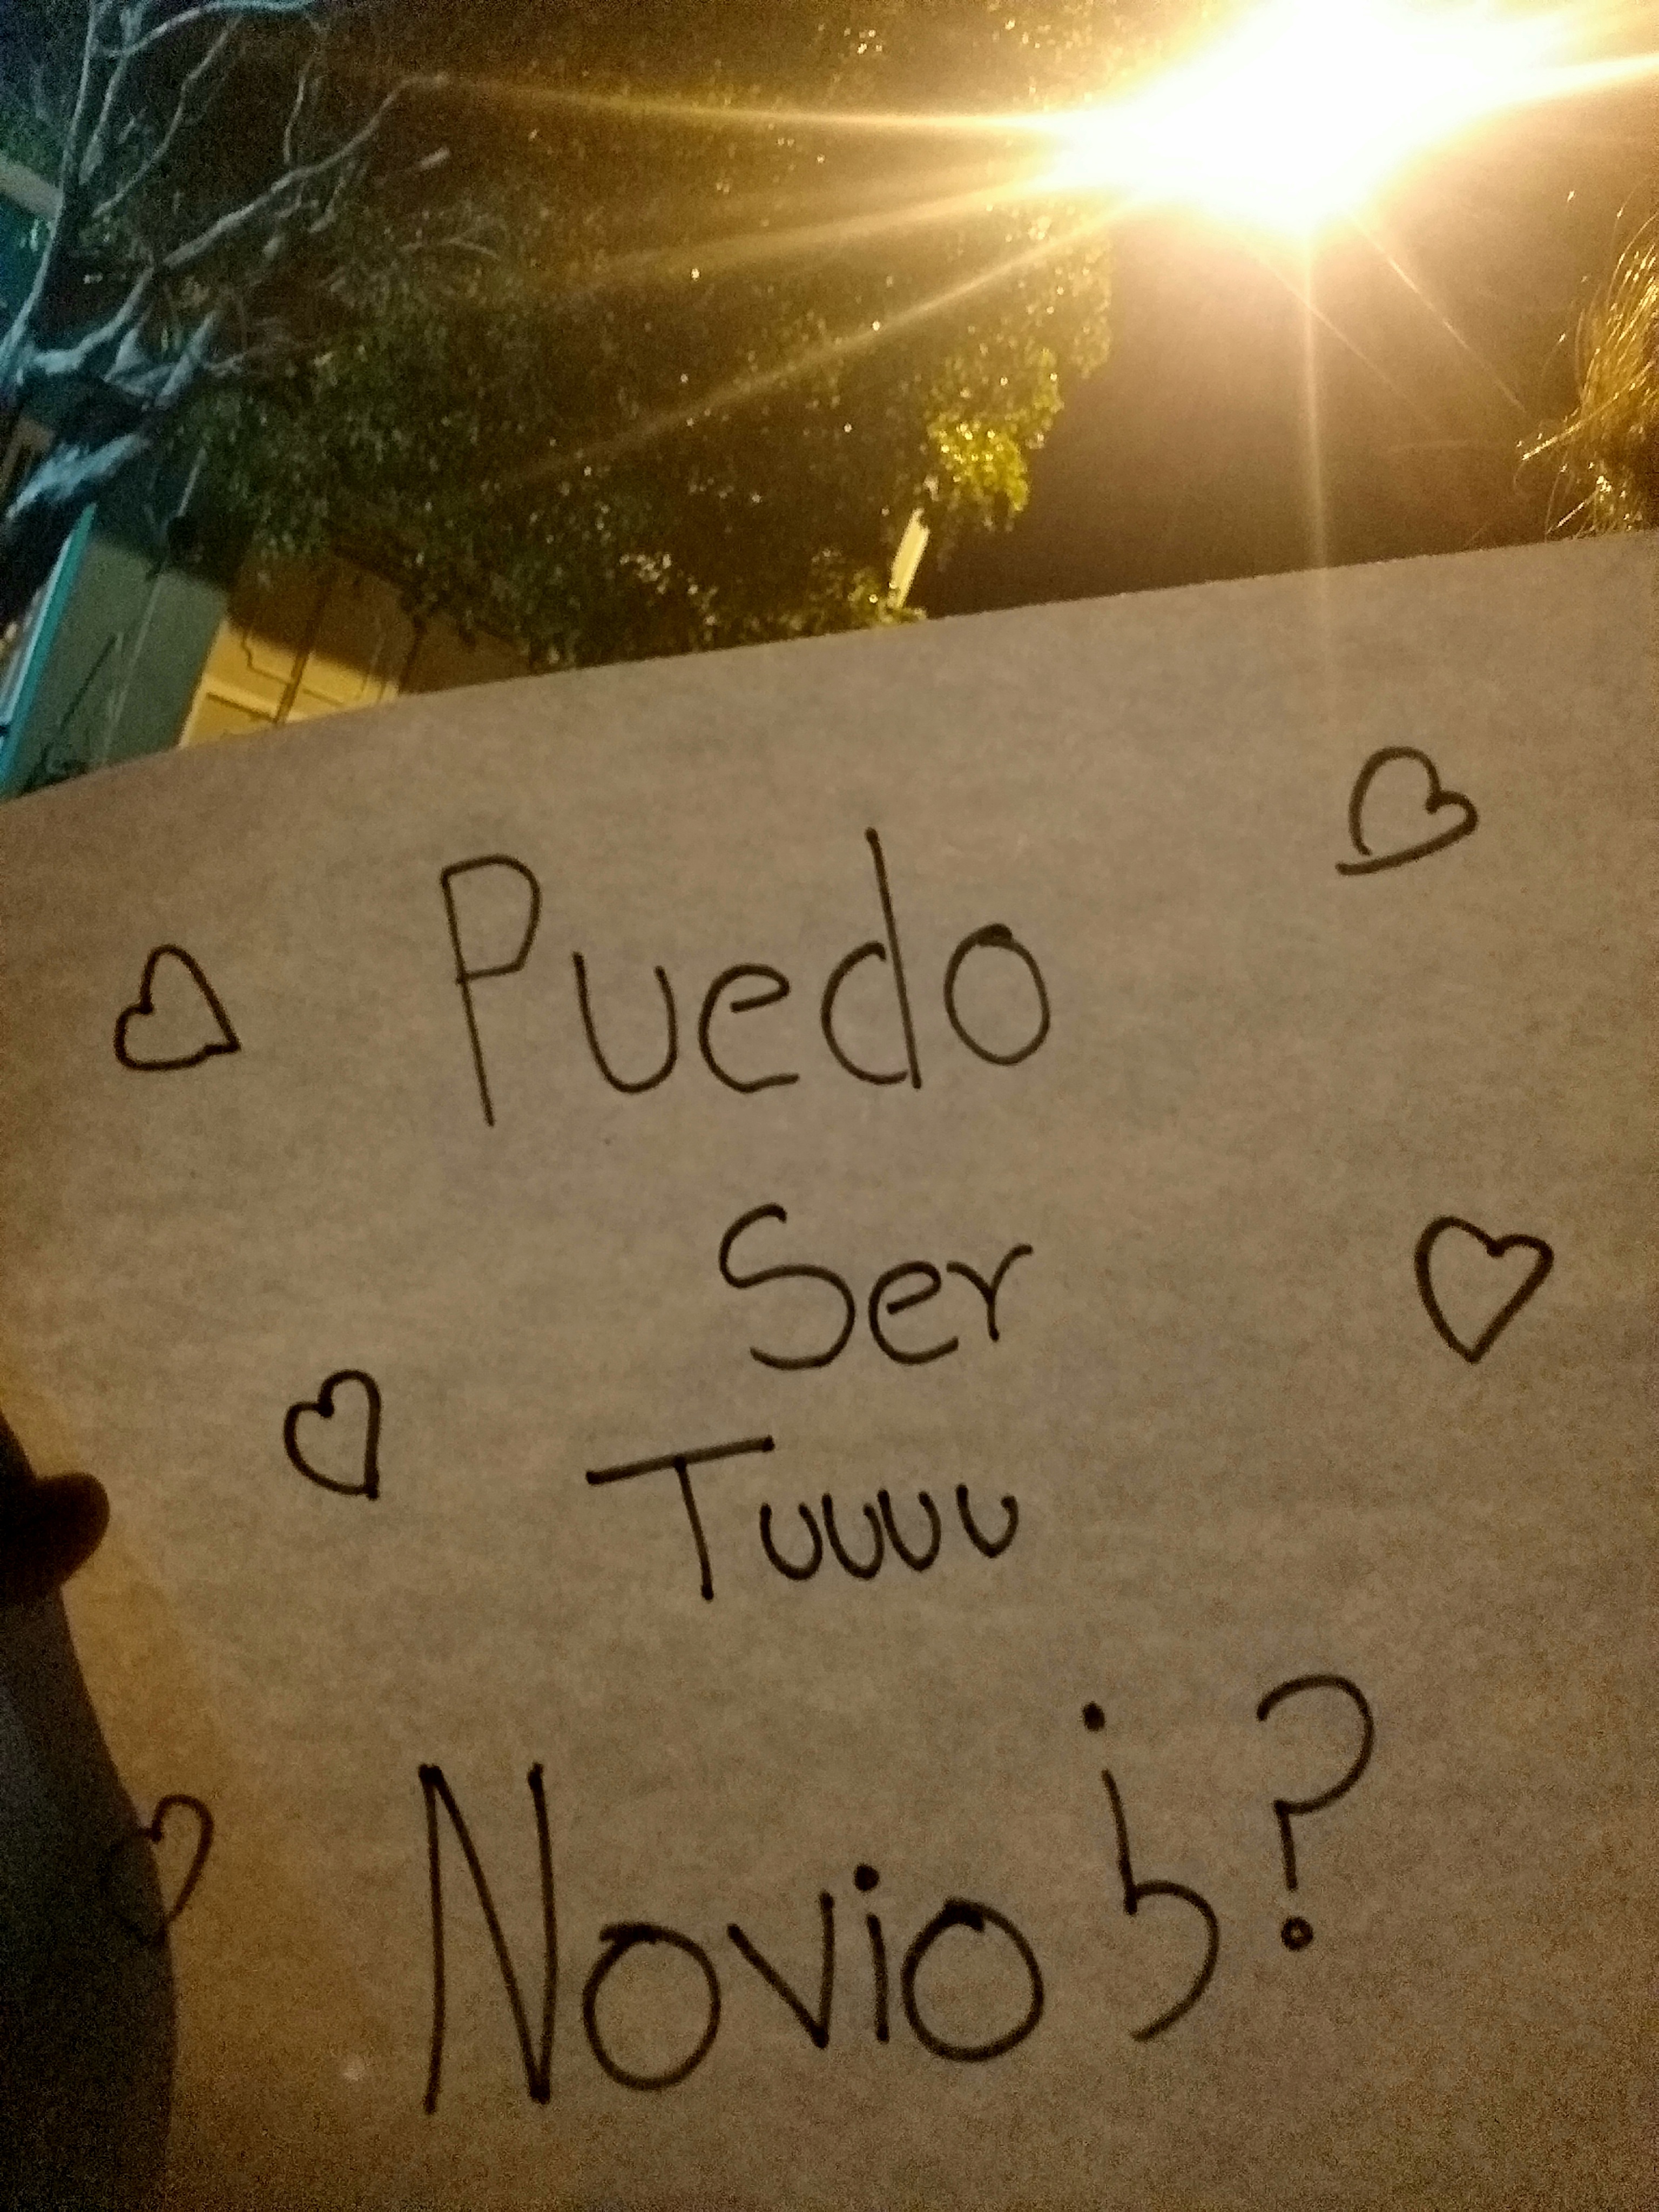 Puedo
Ser
Tuuuu
Novio ¿?